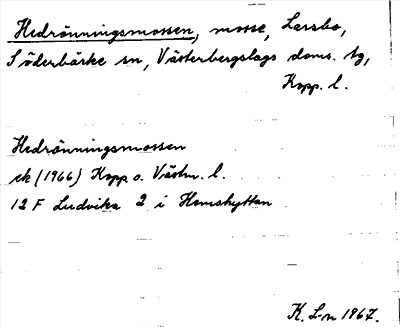 Hedrönningsmossen, mosse, Larsbo,
Söderbärke sn, Västerbergslags doms. tg,
Kopp. l.
Hedrönningsmossen
ek (1966) Kopp o. Västm. l.
12 F Ludvika 2 i Hemshyttan
K. L-n 1967.